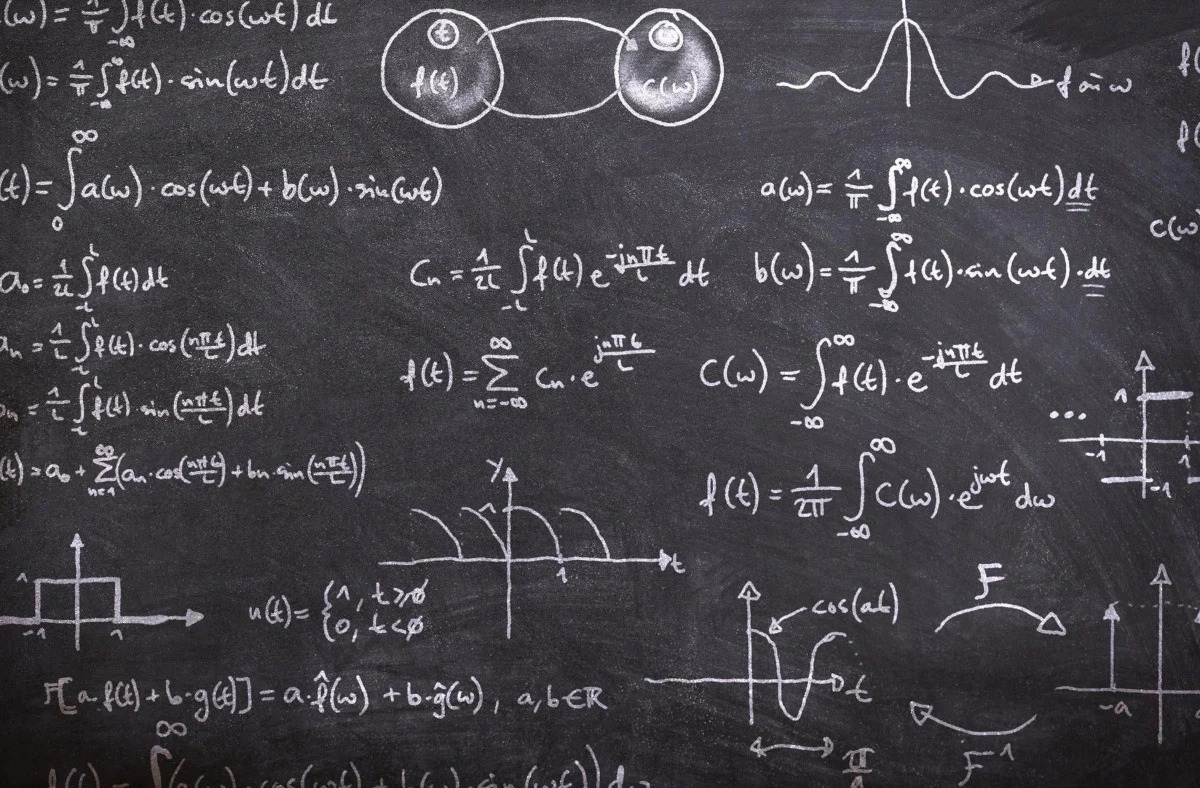 (ω) = 1/π ∫_{-∞} f(t)·cos(ωt) dt
(ω) = 1/π ∫_{-∞}^{∞} f(t)·sin(ωt) dt
t
f(t)
ω
c(ω)
f(
f(
(t) = ∫_0^∞ a(ω)·cos(ωt) + b(ω)·sin(ωt)
a(ω) = 1/π ∫_{-∞}^{∞} f(t)·cos(ωt) dt
c(ω
a₀ = 1/2L ∫_{-L}^{L} f(t) dt
Cn = 1/2L ∫_{-L}^{L} f(t) e^{-jnπt/L} dt
b(ω) = 1/π ∫_{-∞}^{∞} f(t)·sin(ωt)·dt
an = 1/L ∫_{-L}^{L} f(t)·cos(nπt/L) dt
f(t) = ∑_{n=-∞}^{∞} Cn·e^{jnπt/L}
C(ω) = ∫_{-∞}^{∞} f(t)·e^{-jnπt/L} dt
bn = 1/L ∫_{-L}^{L} f(t)·sin(nπt/L) dt
...
1
-1
1
-1
(t) = a₀ + ∑_{n=1}^{∞} (an·cos(nπt/L) + bn·sin(nπt/L))
f(t) = 1/2π ∫_{-∞}^{∞} C(ω)·e^{jωt} dω
y
1
t
1
1
-1
1
u(t) = {1, t≥0
{0, t<0
cos(at)
t
π/a
F
F⁻¹
-a
F[a·f(t) + b·g(t)] = a·f̂(ω) + b·ĝ(ω), a,b∈ℝ
f(t) = ∫^∞ (a(ω)·cos(ωt) + b(ω)·sin(ωt)) dω